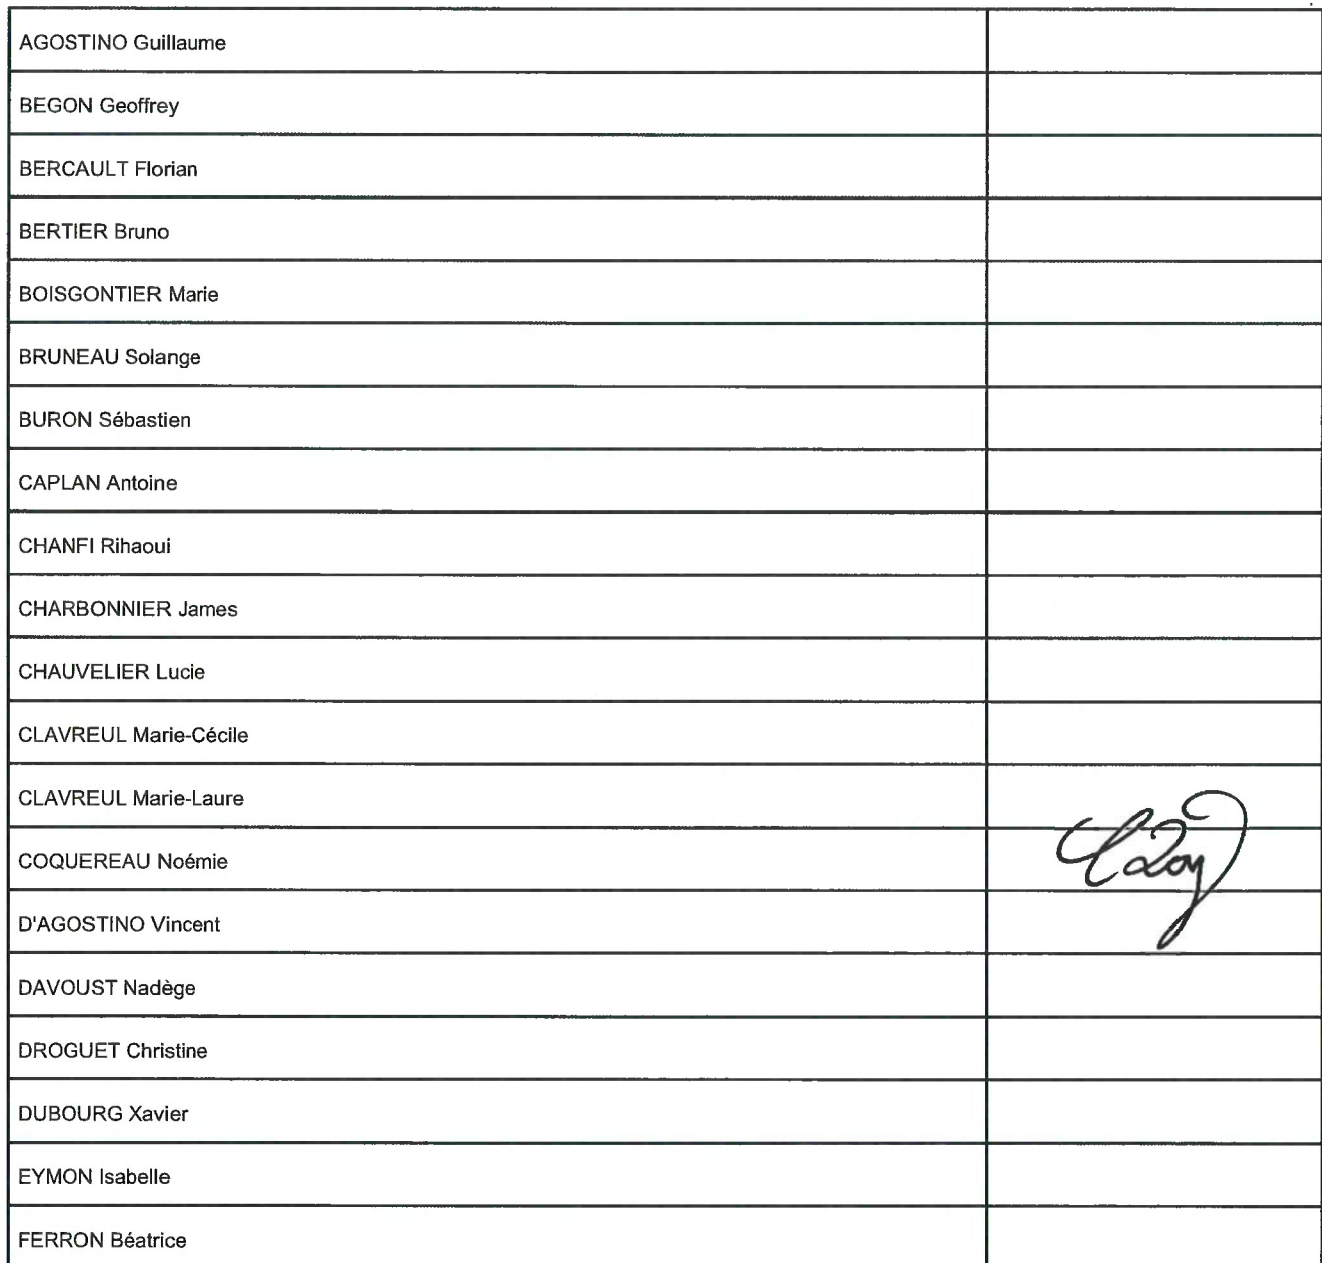 AGOSTINO Guillaume
BEGON Geoffrey
BERCAULT Florian
BERTIER Bruno
BOISGONTIER Marie
BRUNEAU Solange
BURON Sébastien
CAPLAN Antoine
CHANFI Rihaoui
CHARBONNIER James
CHAUVELIER Lucie
CLAVREUL Marie-Cécile
CLAVREUL Marie-Laure
COQUEREAU Noémie
D'AGOSTINO Vincent
DAVOUST Nadège
DROGUET Christine
DUBOURG Xavier
EYMON Isabelle
FERRON Béatrice